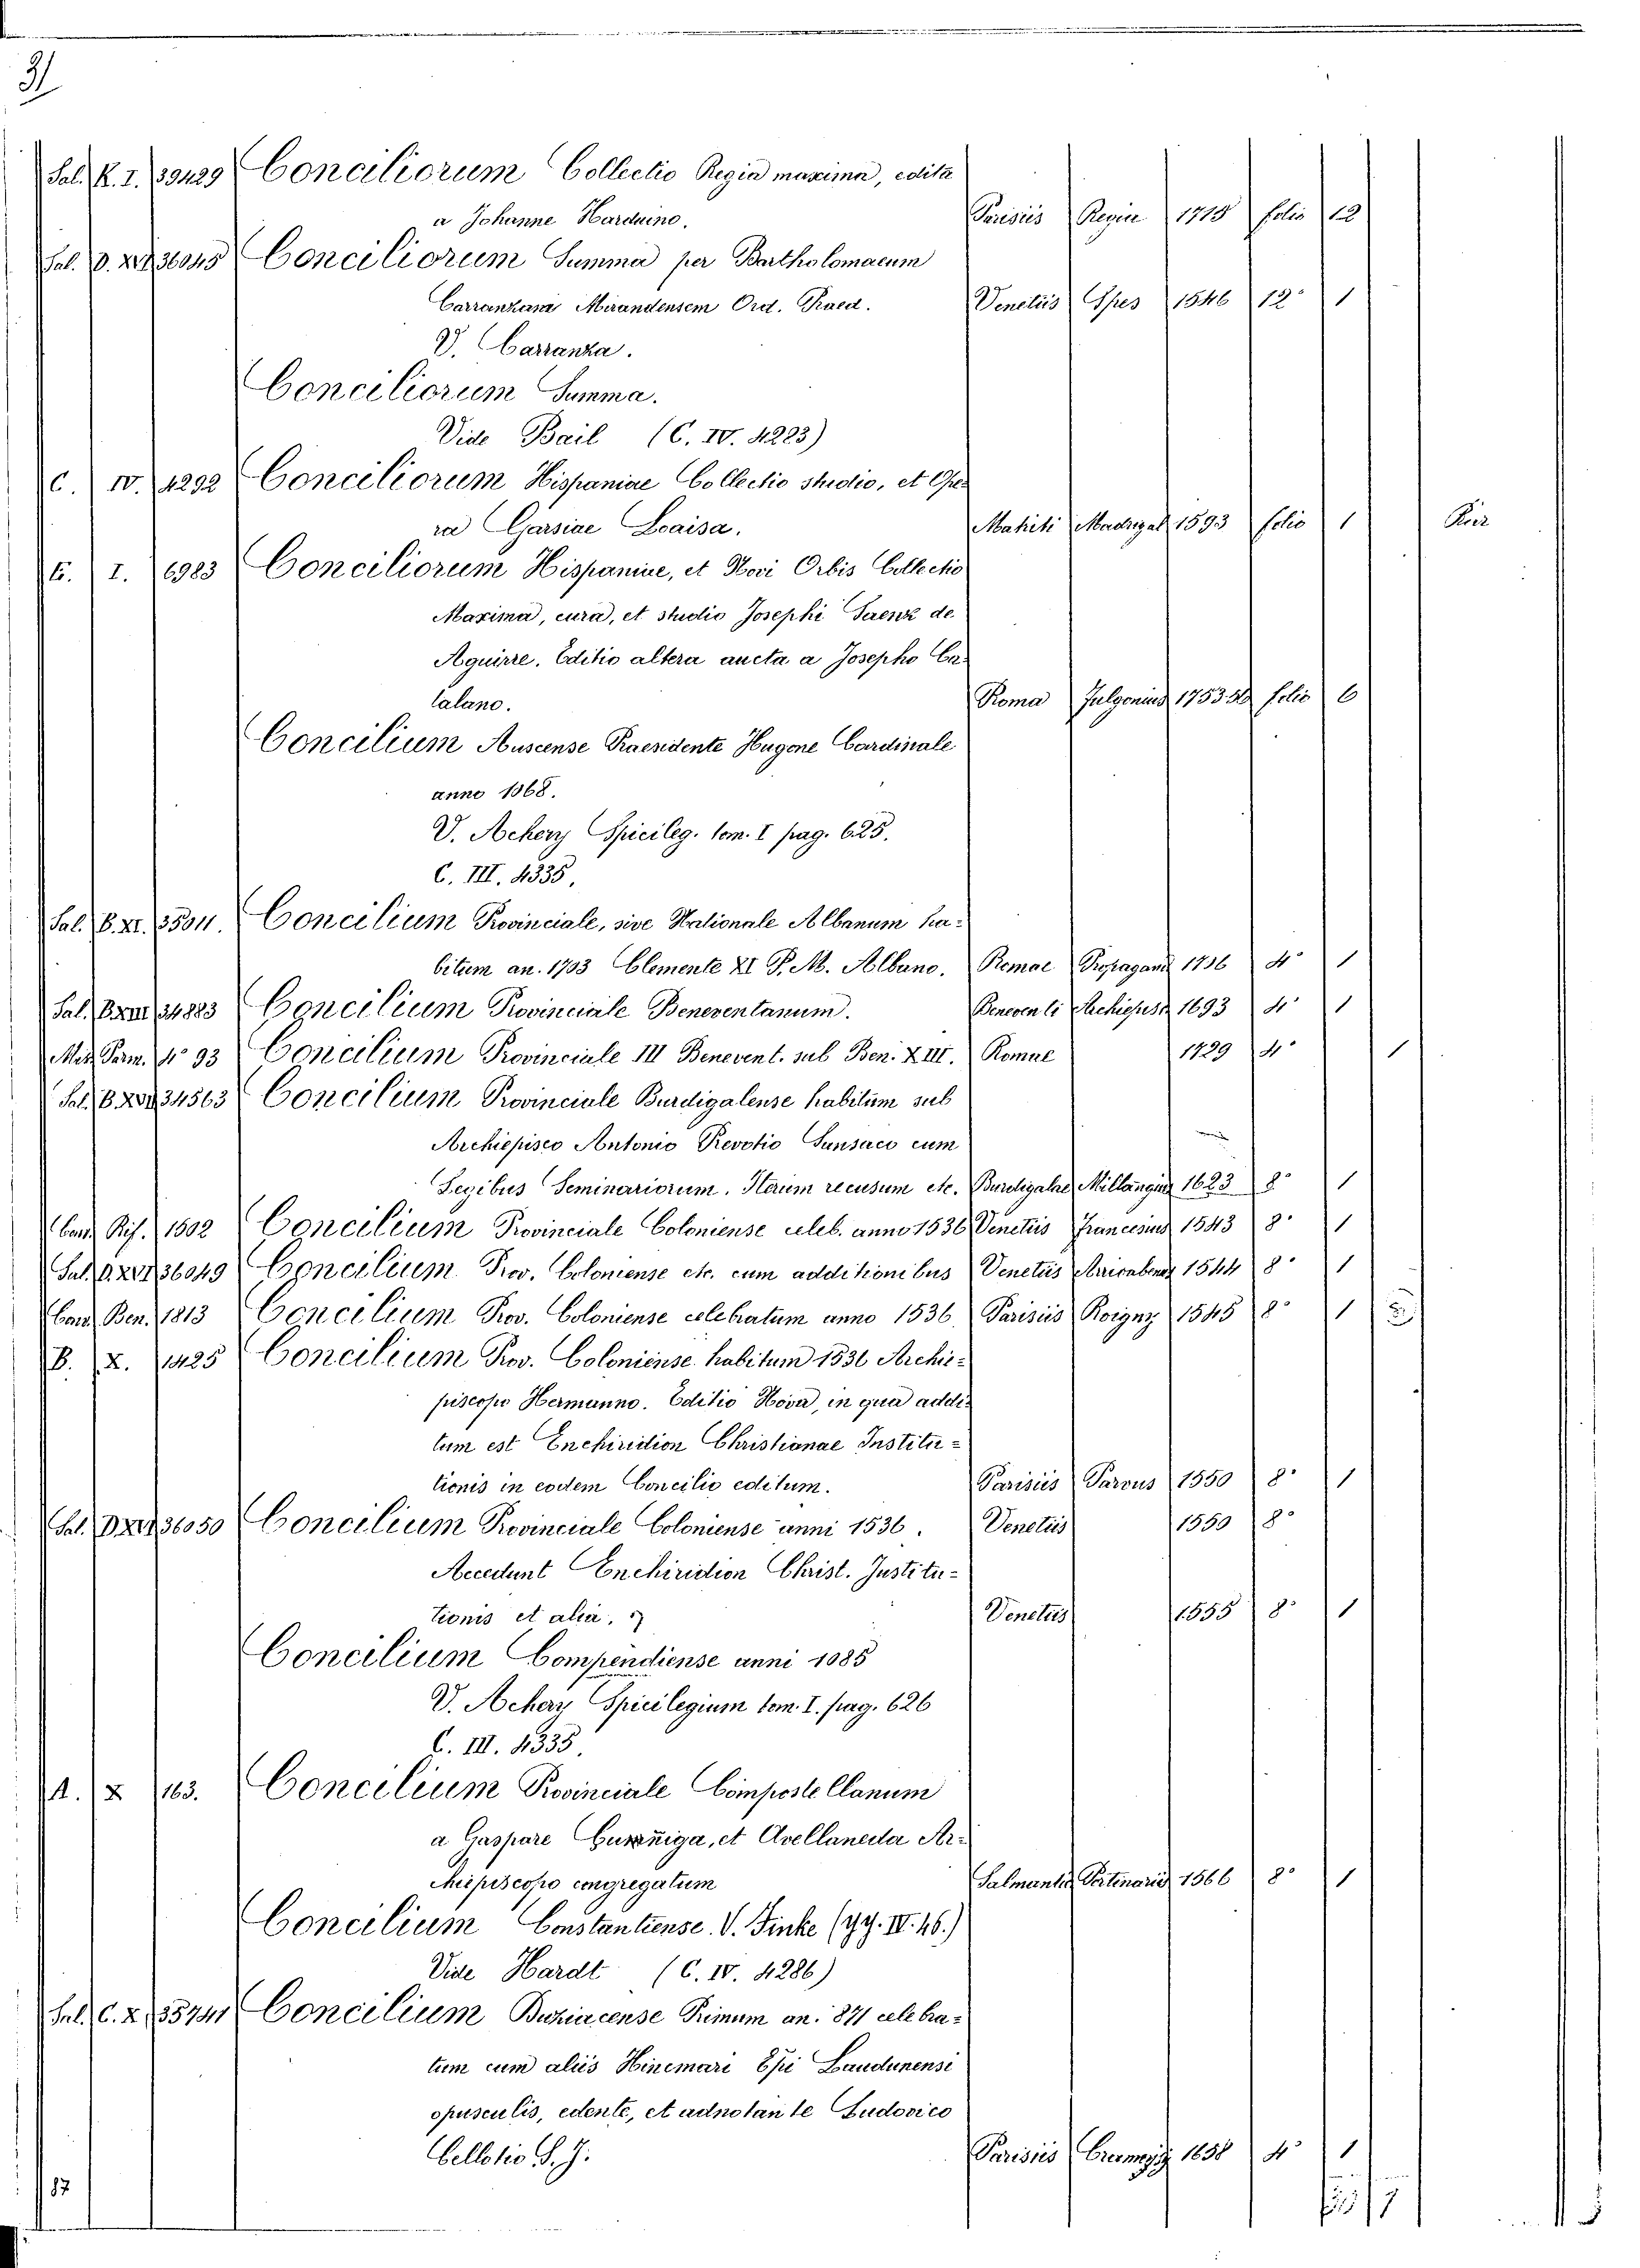 31
Sal. R. I. 39429 Conciliorum Collectio Regia maxima, edita
a Johanne Harduino. Parisiis Regia 1715 folio 12
Sal. D. XVI 36045 Conciliorum Summa per Bartholomaeum
Carranzam Mirandensem Ord. Praed. Venetiis Spes 1546 12° 1
V. Carranza.
Conciliorum Summa.
Vide Bail (C. IV. 4223)
C. IV. 4292 Conciliorum Hispaniae Collectio studio, et Ope
ra Garsiae Loaisa. Matriti Madrigal 1593 folio 1
E. I. 6983 Conciliorum Hispaniae, et Novi Orbis Collectio
Maxima, cura, et studio Josephi Saenz de
Aguirre. Editio altera aucta a Josepho Ca
talano. Roma Fulgonius 1753 folio 6
Concilium Auscense Praesidente Hugone Cardinale
anno 1068.
V. Achery Spicileg. tom. I pag. 625.
C. III. 4335.
Sal. B. XI. 35011. Concilium Provinciale, sive Nationale Albanum ha-
bitum an. 1703 Clemente XI P. M. Albano. Romae Propagand 1706 4° 1
Sal. B. XIII 34883 Concilium Provinciale Beneventanum. Beneventi Archiepisc 1693 4° 1
Mis. Parm. 4° 93 Concilium Provinciale III Benevent. sub Ben. XIII. Romae 1729 4° 1
Sal. B. XVI 34563 Concilium Provinciale Burdigalense habitum sub
Archiepisco Antonio Prevotio Sansaco cum
Legibus Seminariorum. Iterum recusum etc. Burdigalae Millangius 1623 8° 1
Cand. Rif. 1502 Concilium Provinciale Coloniense celeb. anno 1536 Venetiis Francesius 1543 8° 1
Sal. D. XVI 36049 Concilium Prov. Coloniense etc. cum additionibus Venetiis Arivabene 1544 8° 1
Cand. Ben. 1813 Concilium Prov. Coloniense celebratum anno 1536 Parisiis Roigny 1545 8° 1
B. X. 1425 Concilium Prov. Coloniense habitum 1536 Archie-
piscopo Hermanno. Editio Nova, in qua addi-
tum est Enchiridion Christianae Institu-
tionis in eodem Concilio editum. Parisiis Parvus 1550 8° 1
Sal. D. XVI 36050 Concilium Provinciale Coloniense anni 1536. Venetiis 1550 8°
Accedunt Enchiridion Christ. Institu-
tionis et alia. Venetiis 1555 8° 1
Concilium Compendiense anni 1085
V. Achery Spicilegium tom. I. pag. 626
C. III. 4335.
A. X 163. Concilium Provinciale Compostellanum
a Gaspare Zunniga, et Avellaneda Ar-
chiepiscopo congregatum Salmantic Portinariis 1566 8° 1
Concilium Constantiense. V. Finke (YY. IV. 46.)
Vide Hardt (C. IV. 4286)
Sal. C. X. 35741 Concilium Duziacense Primum an. 871 celebra-
tum cum aliis Hincmari Epi Laudunensi
opusculis, edente, et adnotante Ludovico
Cellotio S. J. Parisiis 1658 4° 1
37